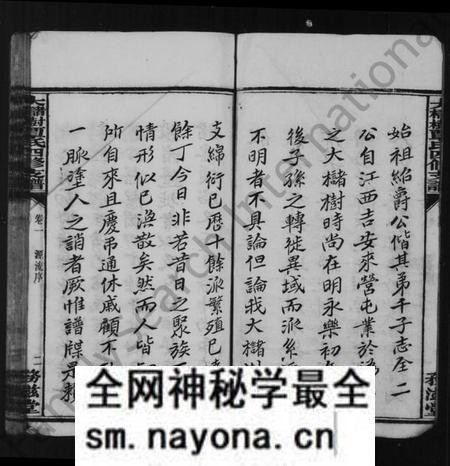 始祖紹爵公偕其弟千子志全二
公自江西吉安来營屯業於
之大櫧樹時尚在明永樂初
後子孫之轉徙異域而派系
不明者不具論但論我大櫧
支綿衍已歷十餘派繁殖已
餘丁今日非若昔日之聚族
情形似已渙散矣然而人皆
所自来且慶吊通休戚顧不
一脈塗人之誚者厥惟譜牒是賴
卷一
源流序
二
務滋堂
全网神秘学最全
sm.nayona.cn